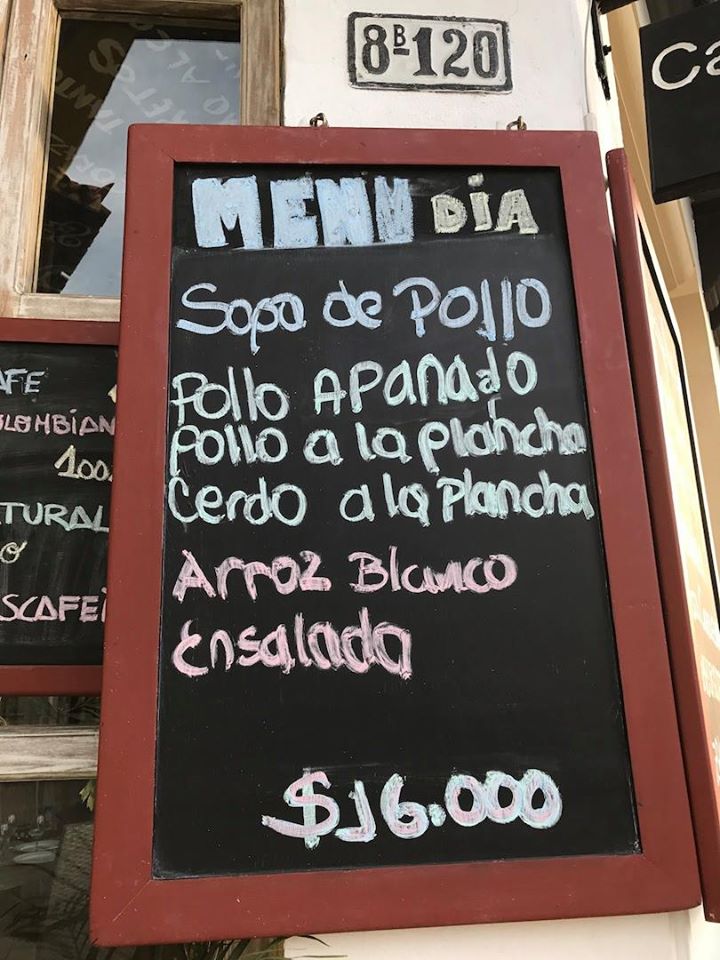 8B-120
Ca
MENU DIA
Sopa de Pollo
Pollo APanado
Pollo a la plancha
Cerdo a la Plancha
Arroz Blanco
Ensalada
$16.000
AFE
LOMBIAN
100
TURAL
O
SCAFEI